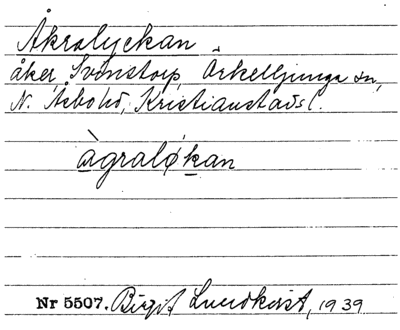 Åkralyckan
åker, Svenstorp, Örkelljunga sn,
N. Åsbo hd, Kristianstads l.
àgraløkan
Nr 5507. Birgit Lundkvist, 1939